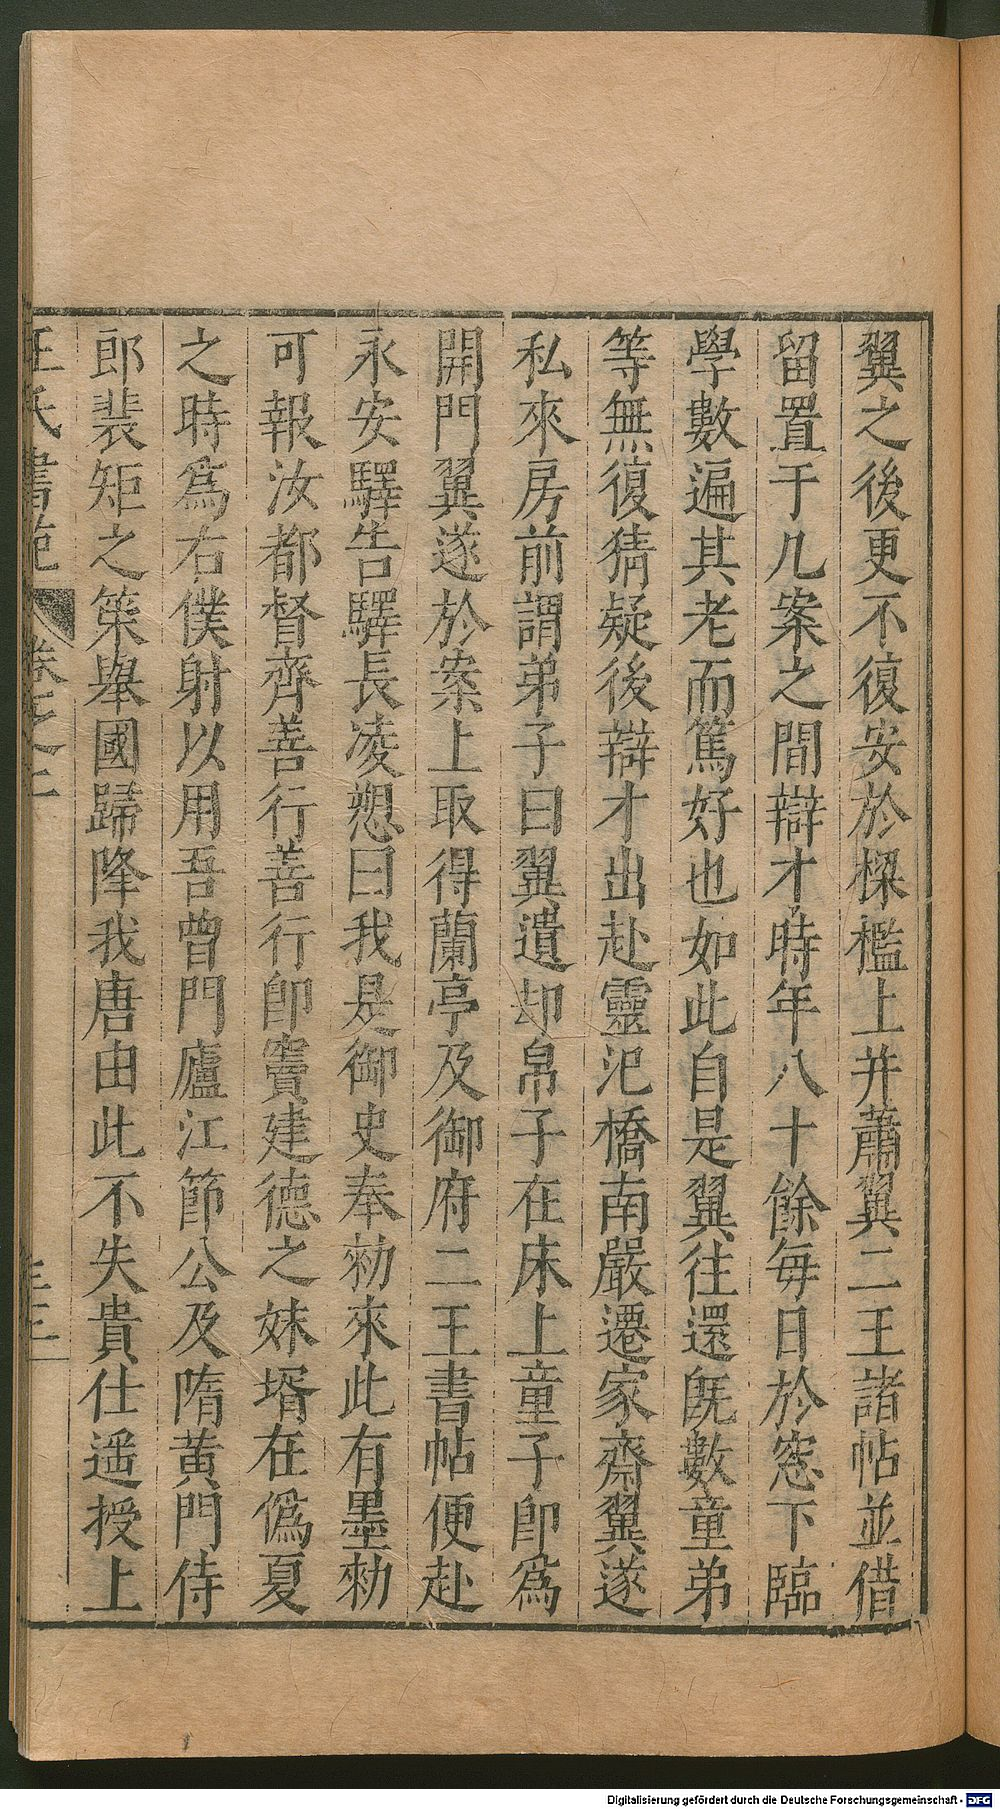 翼之後更不復安於樑檻上并蕭翼二王諸帖並借
留置于几案之間辯才時年八十餘每日於窓下臨
學數遍其老而篤好也如此自是翼往還旣數童弟
等無復猜疑後辯才出赴靈汜橋南嚴遷家齋翼遂
私來房前謂弟子曰翼遺却帛子在床上童子卽爲
開門翼遂於案上取得蘭亭及御府二王書帖便赴
永安驛告驛長凌愬曰我是御史奉勑來此有墨勑
可報汝都督齊善行善行卽竇建德之妹壻在僞夏
之時爲右僕射以用吾曾門廬江節公及隋黃門侍
郎裴矩之策舉國歸降我唐由此不失貴仕遥授上
王氏書苑 卷之二 三三
Digitalisierung gefördert durch die Deutsche Forschungsgemeinschaft - DFG